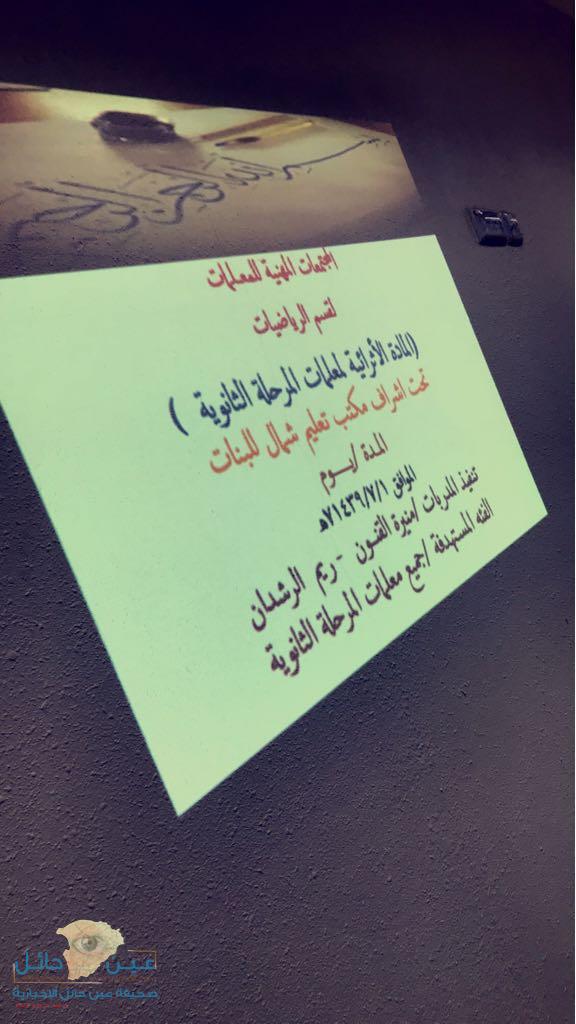 بسم الله الرحمن الرحيم
المجتمعات المهنية للمعلمات
لقسم الرياضيات
(المادة الأثرائية لمعلمات المرحلة الثانوية )
تحت اشراف مكتب تعليم شمال للبنات
المدة /يـــوم
الموافق ٧١٤٣٩/٧/١هـ
تنفيذ المدربات /منيرة القنون - ريم الرشدان
الفئه المستهدفة /جميع معلمات المرحلة الثانوية
عين حائل
صحيفة عين حائل الاخبارية